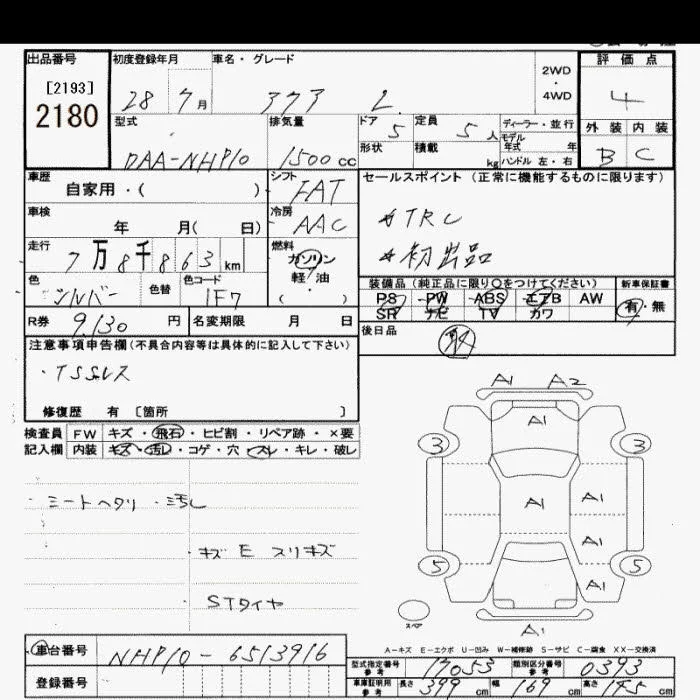 出品番号
[2193]
2180
初度登録年月 車名・グレード
28 7月 アクア L
2WD
・
4WD
評価点
4
外装 内装
B C
型式 排気量 ドア 定員 ディーラー・並行
DAA-NHP10 1500cc 5 5人 モデル
年式 年
形状 積載 kg ハンドル 左・右
車歴 シフト
自家用・( ) FAT
セールスポイント (正常に機能するものに限ります)
*TRC
*初出品
車検 冷房
年 月( 日) AAC
走行 燃料
7万8千863km ガソリン
軽・油
・( )
色 色替 色コード
シルバー 1F7
装備品(純正品に限り○をつけてください) 新車保証書
PS PW ABS エアB AW 有・無
SR ナビ TV カワ
R券 9,130円 名変期限 月 日
後日品
注意事項申告欄(不具合内容等は具体的に記入して下さい)
修復歴 有 〔箇所 〕
検査員 FW キズ・飛石・ヒビ割・リペア跡・×要
記入欄 内装 キズ・汚し・コゲ・穴・スレ・キレ・破レ
・シートヘタリ・汚し
・キズ E スリキズ
STタイヤ
A1 A2
A1
3 3
A1 A1
A1
5 5
A1
スペア
A1
A-キズ E-エクボ U-凹み W-補修跡 S-サビ C-腐食 XX-交換済
車台番号 NHP10-6513916
登録番号
型式指定番号 参考 17053 類別区分番号 参考 0393
車庫証明用 参考 長さ 399cm 幅 169cm 高さ 145cm